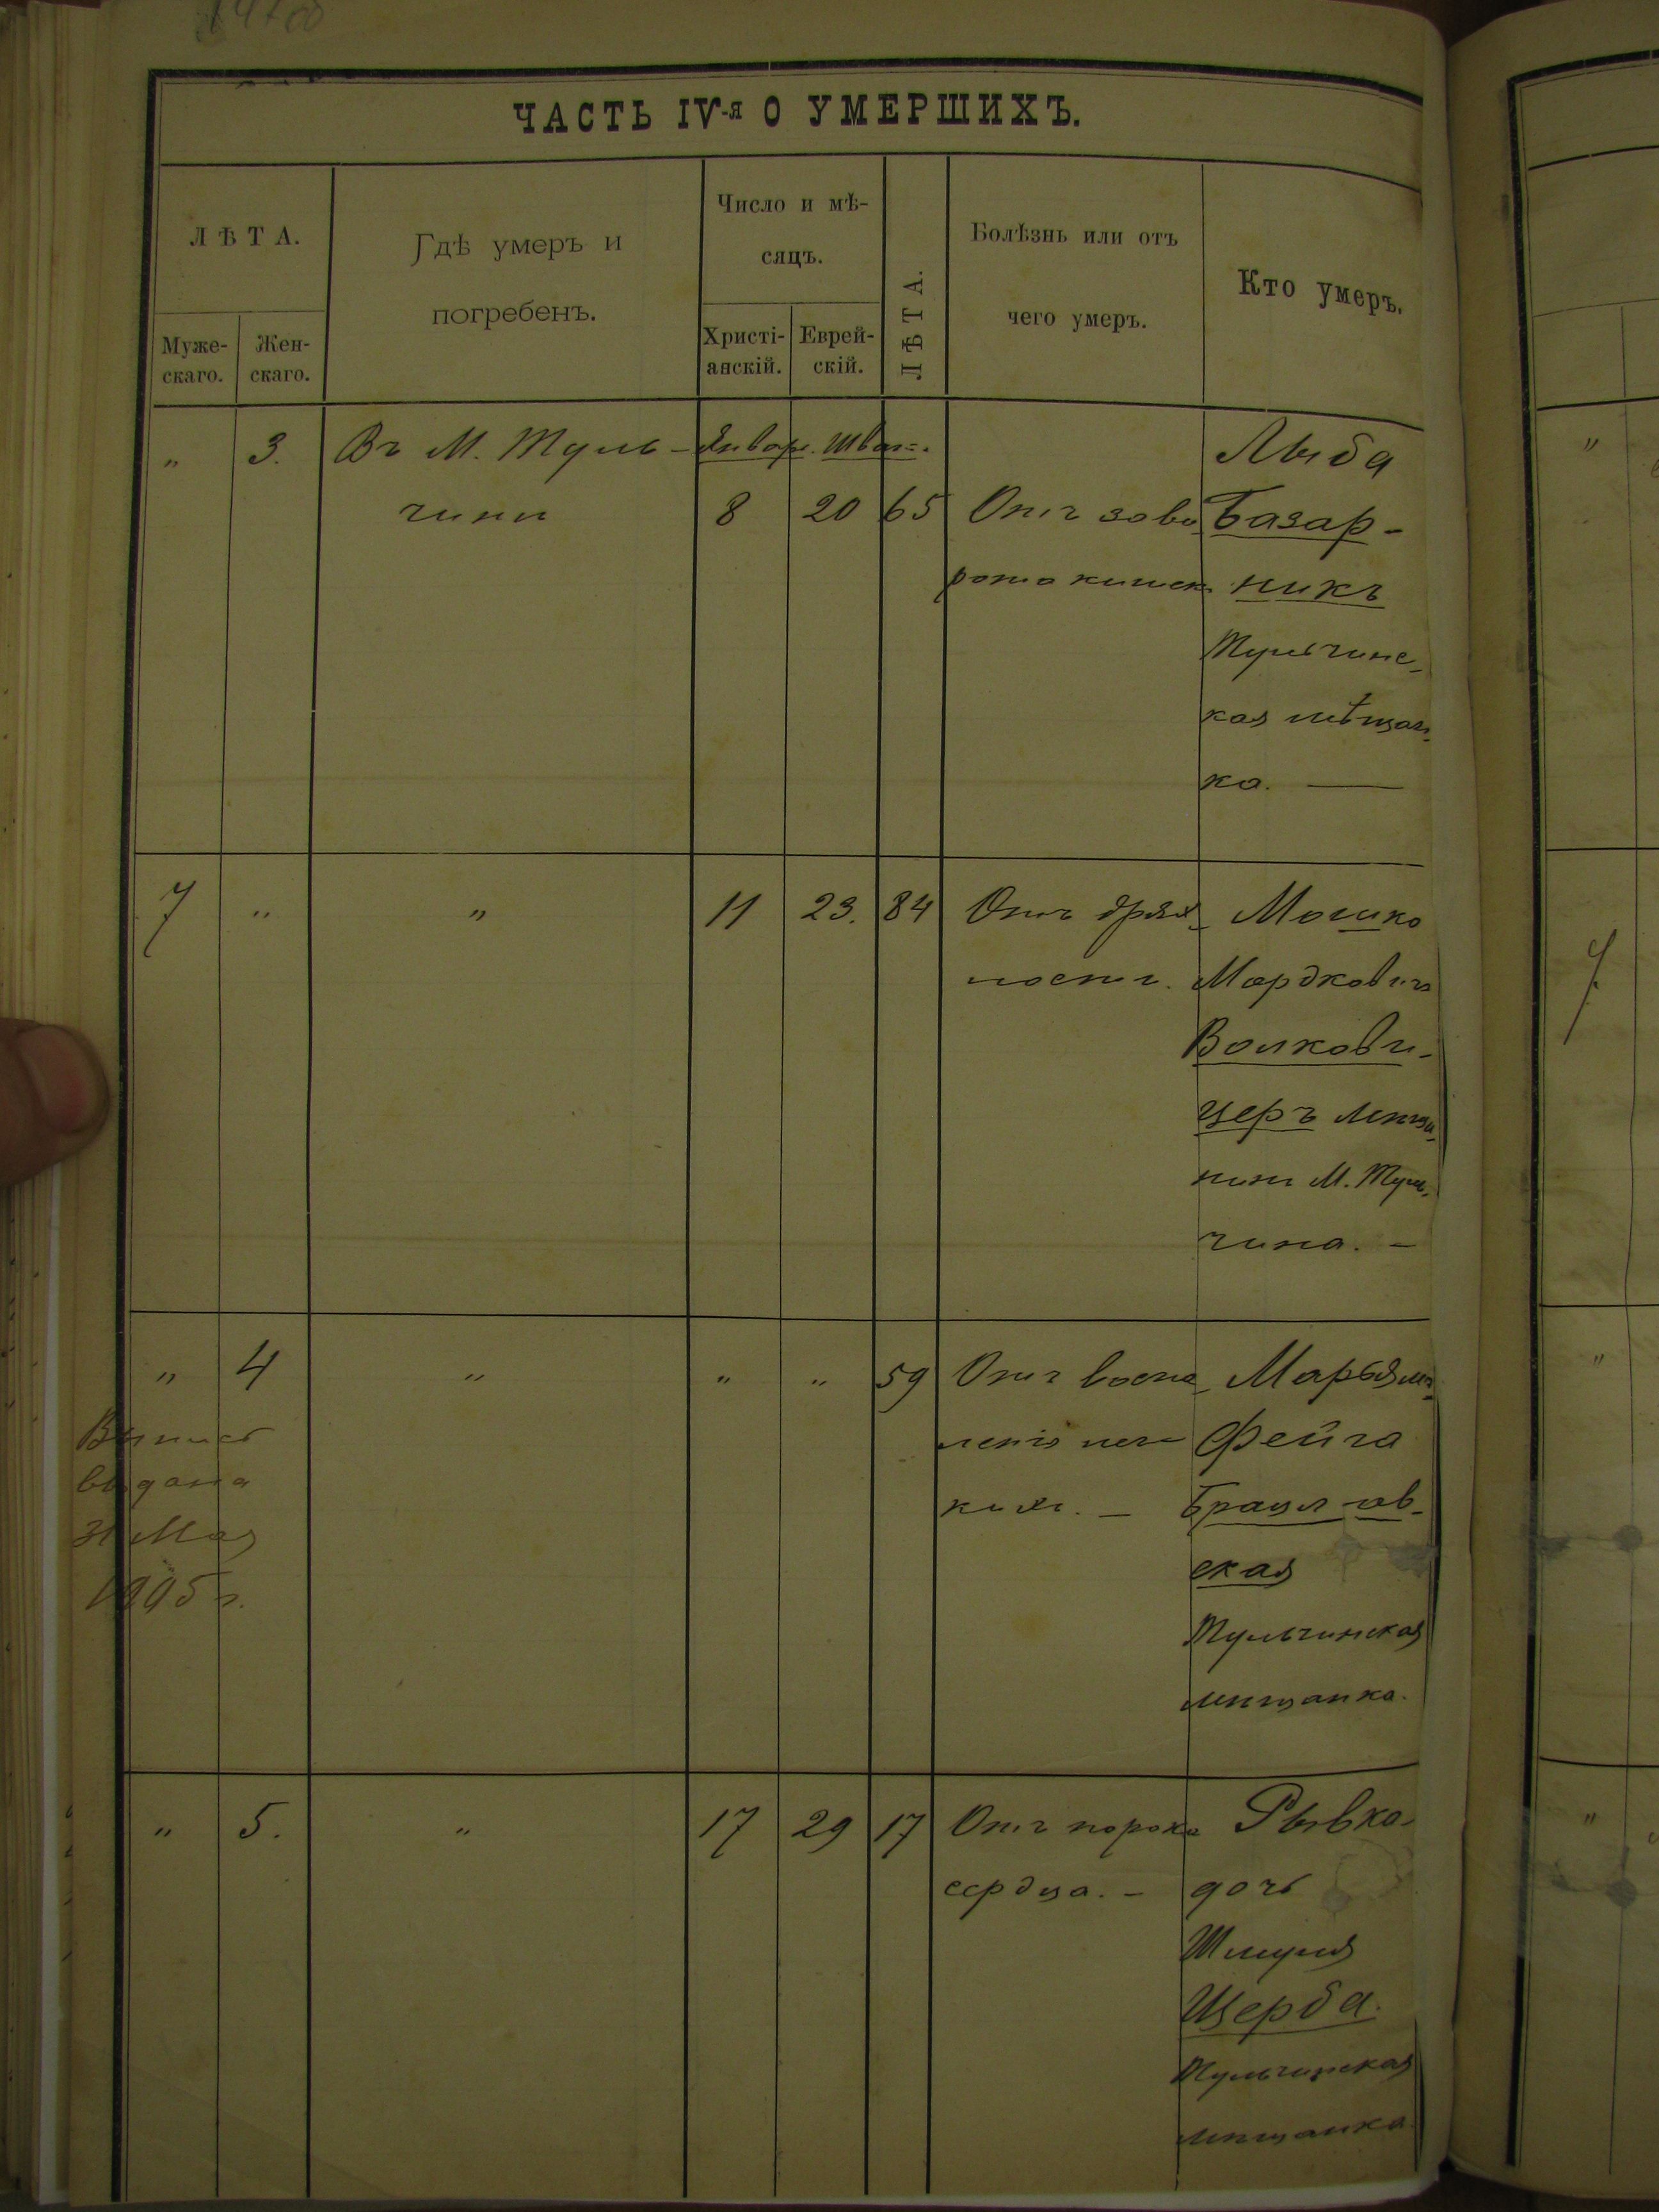 ЧАСТЬ IV-я О УМЕРШИХЪ.
ЛѢТА.
Муже-
скаго.
Жен-
скаго.
Гдѣ умеръ и
погребенъ.
Число и мѣ-
сяцъ.
Христі-
анскій.
Еврей-
скій.
ЛѢТА.
Болѣзнь или отъ
чего умеръ.
Кто умеръ.
" 3. Въ М. Туль-
чинѣ
Январ. Шват.
8 20 65
Отъ заво
рота кишек
Лыба
Базар-
никъ
Тульчинс-
кая мѣщан-
ка.
7 " " 11 23. 84
Отъ дрях-
лости.
Мошко
Мордковичъ
Волкови-
церъ мѣща-
нинъ М. Туль-
чина.
" 4 " " " 59
Отъ воспа-
ленія лег-
кихъ.
Марьям-
Фейга
Брацлав-
ская
Тульчинская
мѣщанка.
Выпись
выдана
31 Мая
1905 г.
" 5. " 17 29 17
Отъ порока
сердца.
Рывка-
дочь
Шмуля
Щерба.
Тульчинская
мѣщанка